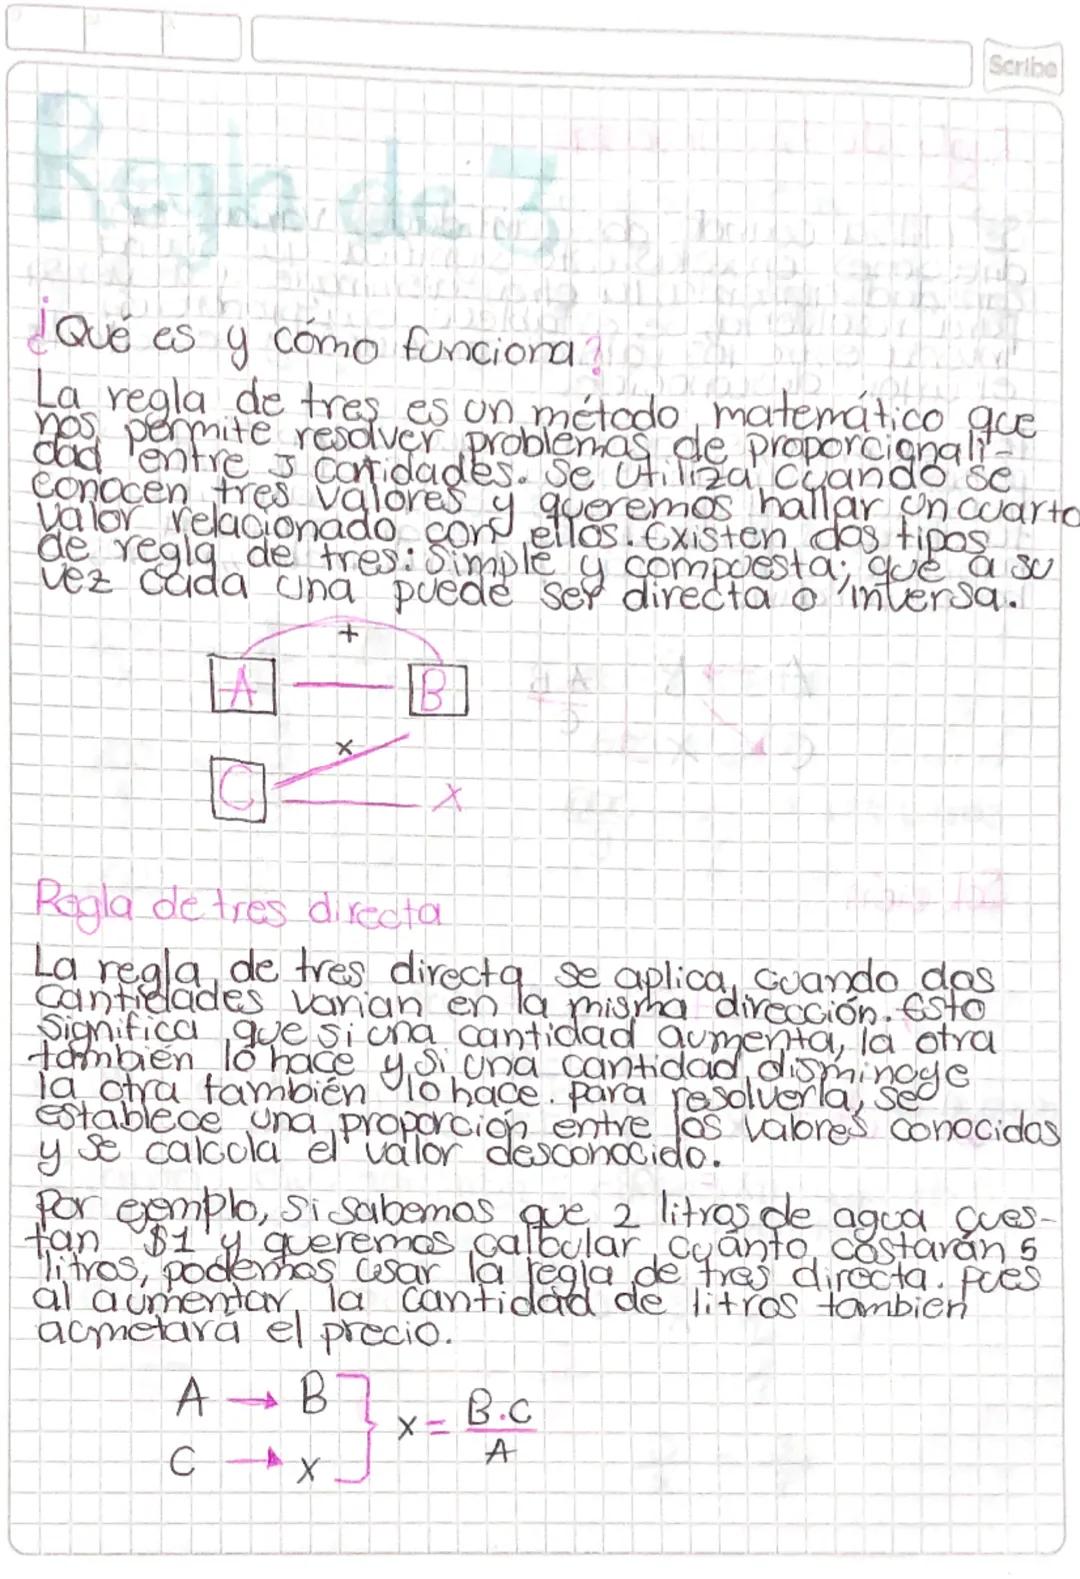 Scribe
Regla de 3
¿Qué es y cómo funciona?
La regla de tres es un método matemático que
nos permite resolver problemas de proporcionali-
dad entre 3 cantidades. Se utiliza cuando se
conocen tres valores y queremos hallar un cuarto
valor relacionado con ellos. Existen dos tipos
de regla de tres: Simple y compuesta; que a su
vez cada una puede ser directa o inversa.
+
A B
x
C x
Regla de tres directa
La regla de tres directa se aplica cuando dos
cantidades varian en la misma dirección. Esto
significa que si una cantidad aumenta, la otra
también lo hace y si una cantidad disminuye
la otra también lo hace. para resolverla, se
establece una proporción entre los valores conocidos
y se calcula el valor desconocido.
Por ejemplo, si sabemos que 2 litros de agua cues-
tan $1 y queremos calcular cuánto costarán 5
litros, podemos usar la regla de tres directa. pues
al aumentar la cantidad de litros tambien
aumetará el precio.
A → B
C → x
x = B.C
A